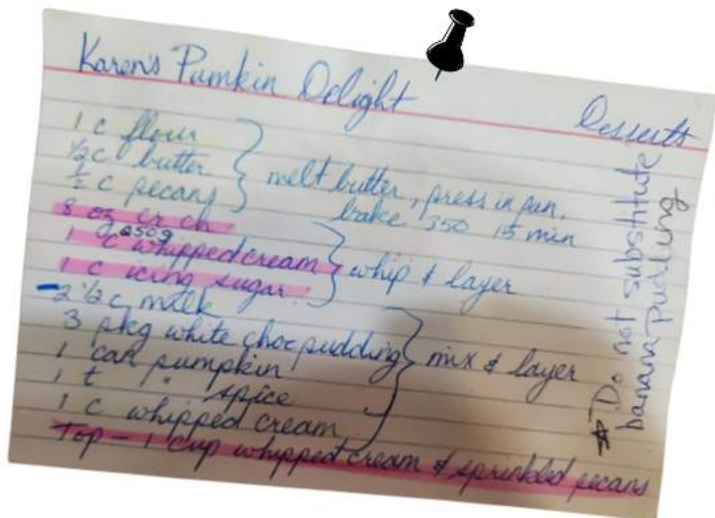 Karen's Pumkin Delight
Desserts
1 c flour
½ c butter
½ c pecans
melt butter, press in pan,
bake 350 15 min
8 oz cr ch
250g
1 c whipped cream
1 c icing sugar
whip & layer
2 ½ c milk
3 pkg white choc pudding
1 can pumpkin
1 t " spice
1 c whipped cream
mix & layer
Top - 1 cup whipped cream & sprinkled pecans
* Do not substitute
banana pudding